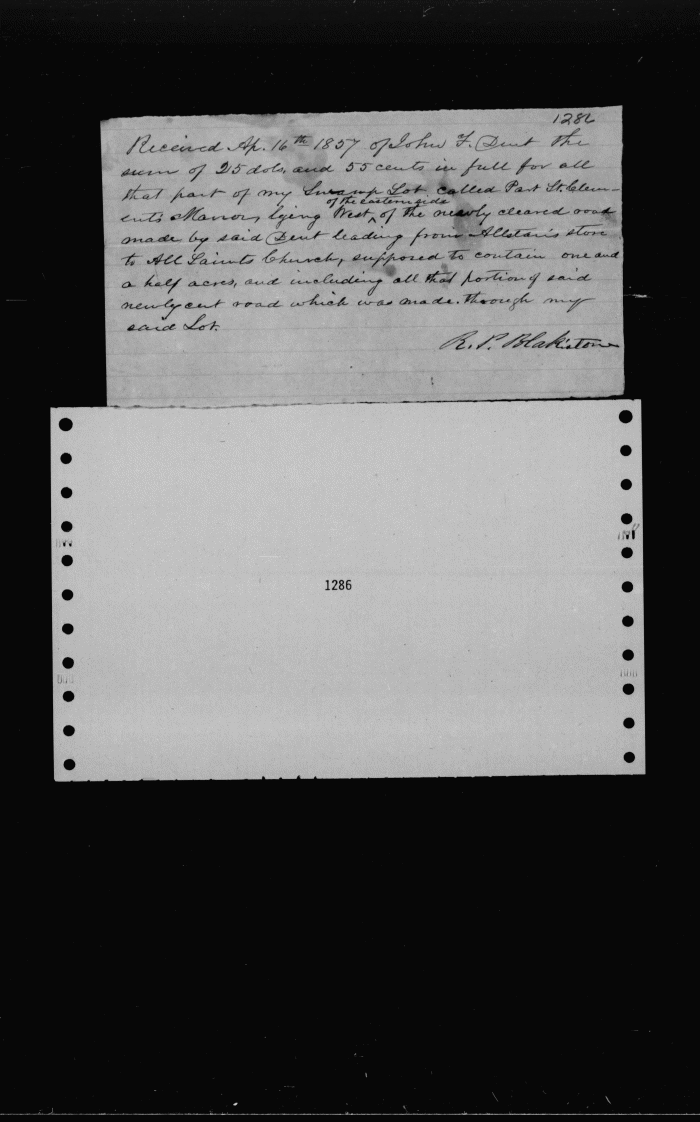 1286
Received Ap. 16th 1857 of John F. Dent the
sum of 25 dols, and 55 cents in full for all
that part of my Swamp Lot called Part St. Clem-
of the eastern side
ents Manor, lying West ^ of the newly cleared road
made by said Dent leading from Allstan's store
to All Saints Church, supposed to contain one and
a half acres, and including all that portion of said
newly cut road which was made through my
said Lot.
R. P. Blakistone
1286